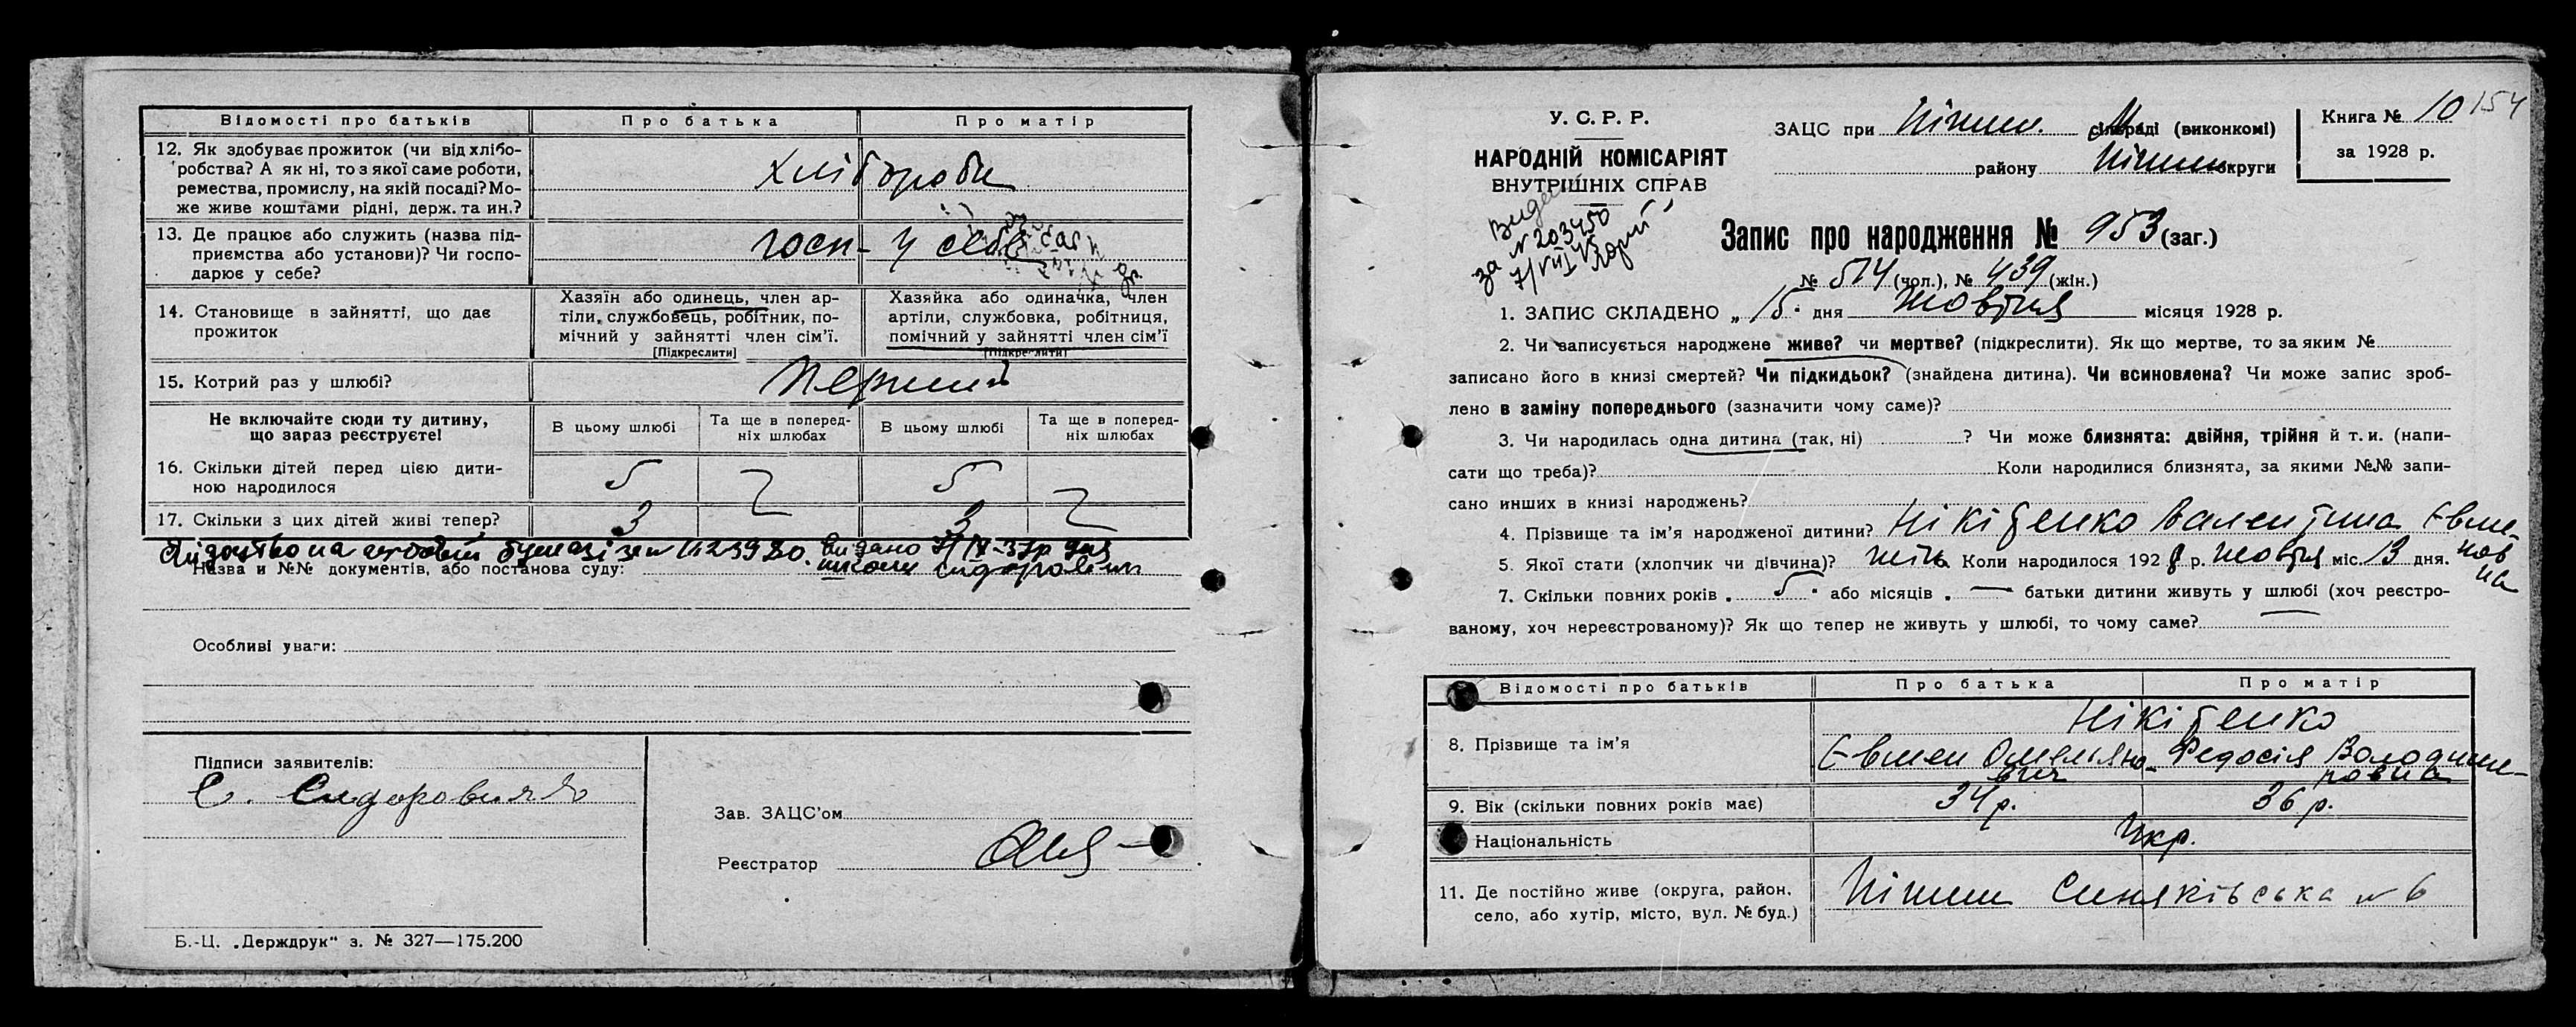 Відомості про батьків Про батька Про матір
12. Як здобуває прожиток (чи від хлібо-
робства? А як ні, то з якої саме роботи,
ремества, промислу, на якій посаді? Мо-
же живе коштами рідні, держ. та ин.?
хлібороби
13. Де працює або служить (назва під-
приємства або установи)? Чи госпо-
дарює у себе?
госп- у себе
14. Становище в зайнятті, що дає
прожиток
Хазяїн або одинець, член ар-
тіли, службовець, робітник, по-
мічний у зайнятті член сім'ї.
[Підкреслити]
Хазяйка або одиначка, член
артіли, службовка, робітниця,
помічний у зайнятті член сім'ї
[Підкреслити]
15. Котрий раз у шлюбі? Перший
Не включайте сюди ту дитину,
що зараз реєструєте!
В цьому шлюбі
Та ще в поперед-
ніх шлюбах
В цьому шлюбі
Та ще в поперед-
ніх шлюбах
16. Скільки дітей перед цією дити-
ною народилося
5 5
17. Скільки з цих дітей живі тепер? 3 3
Видано
Назва и №№ документів, або постанова суду:
Особливі уваги:
Підписи заявителів:
Є. Сидорович
Зав. ЗАЦС'ом
Реєстратор
Б.-Ц. „Держдрук" з. № 327—175.200
У. С. Р. Р.
НАРОДНІЙ КОМІСАРІЯТ
ВНУТРІШНІХ СПРАВ
за № 203450
7/VII 45
ЗАЦС при Ніжин. М. сільраді (виконкомі)
району Ніжин округи
Книга № 10 154
за 1928 р.
Запис про народження № 953 (заг.)
№ 514 (чол.), № 439 (жін.)
1. ЗАПИС СКЛАДЕНО „ 15 " дня Жовтня місяця 1928 р.
2. Чи записується народжене живе? чи мертве? (підкреслити). Як що мертве, то за яким №
записано його в книзі смертей? Чи підкидьок? (знайдена дитина). Чи всиновлена? Чи може запис зроб-
лено в заміну попереднього (зазначити чому саме)?
3. Чи народилась одна дитина (так, ні) ? Чи може близнята: двійня, трійня й т. и. (напи-
сати що треба)? Коли народилися близнята, за якими №№ запи-
сано инших в книзі народжень?
4. Прізвище та ім'я народженої дитини? Нікітенко Валентина Євме-
нов
на
5. Якої стати (хлопчик чи дівчина)? жін. Коли народилося 1928 р. Жовтня міс. 13 дня.
7. Скільки повних років „ 5 " або місяців „ — батьки дитини живуть у шлюбі (хоч реєстро-
ваному, хоч нереєстрованому)? Як що тепер не живуть у шлюбі, то чому саме?
Відомості про батьків Про батька Про матір
Нікітенко
8. Прізвище та ім'я
Євмен Омеляно-
вич
Федосія Володими-
ровна
9. Вік (скільки повних років має) 34 р. 36 р.
Національність Укр.
11. Де постійно живе (округа, район,
село, або хутір, місто, вул. № буд.)
Ніжин Синяківська № 6